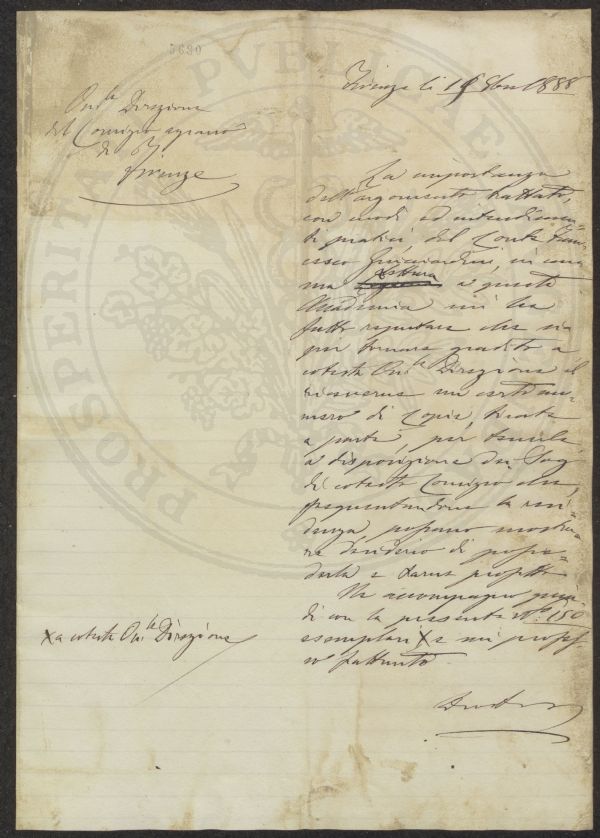 5690
Firenze li 18bre 1888
On.le Direzione
del Comizio agrario
di
Firenze
La importanza
dell'argomento trattato,
con modi ed intendimen-
ti pratici, del Conte Fran-
cesco Guicciardini, in una
sua lettura a questa
Accademia mi ha
fatto reputare che sia
per tornare gradito a
cotesta On.le Direzione il
ricevere un certo nu-
mero di Copie, tirate
a parte, per tenerle
a disposizione dei Sogg
di cotesto Comizio che,
frequentandone la resi-
denza possano mostra-
re desiderio di posse-
derla e trarne profitto
Ne accompagno quin-
di con la presente N.o 150
esemplari X e mi profes-
so frattanto
X a cotesta On.le Direzione
PROSPERITATI PUBLICAE